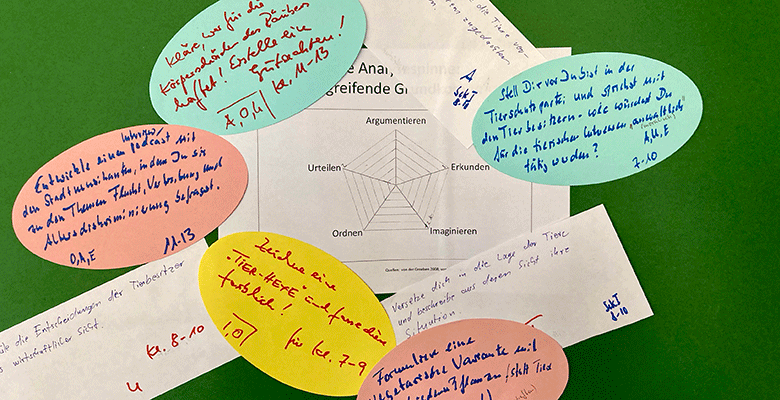 Kläre, wer für die
Körperschäden des Räubers
haftet! Erstelle ein
Gutachten!
A, O, U
Kl. 11-13
die Tiere
zugedachten
A
SekI
8-10
Stell Dir vor Du bist in der
Tierschutzpartei und sprichst mit
den Tierbesitzern - wie würdest Du
für die tierischen Interessen "anwaltlich"
tätig werden?
A, U, E
7-10
greifende
Argumentieren
Urteilen
Erkunden
Ordnen
Imaginieren
Entwickle einen podcast mit
den Stadtmusikanten, in dem Du sie
zu den Themen Flucht, Vertreibung und
Altersdiskriminierung befragst.
O, A, E
11-13
Zeichne eine
"TIER-HEFE" und
farblich!
I, O
für Kl. 7-9
die Entscheidungen der Tierbesitzer
wirtschaftlicher Sicht.
Kl. 8-10
U
Versetze dich in die Lage der Tiere
und beschreibe aus deren Sicht ihre
Situation.
SekI
8-10
Formuliere eine
vegetarische Variante mit
Pflanzen (statt Tiere